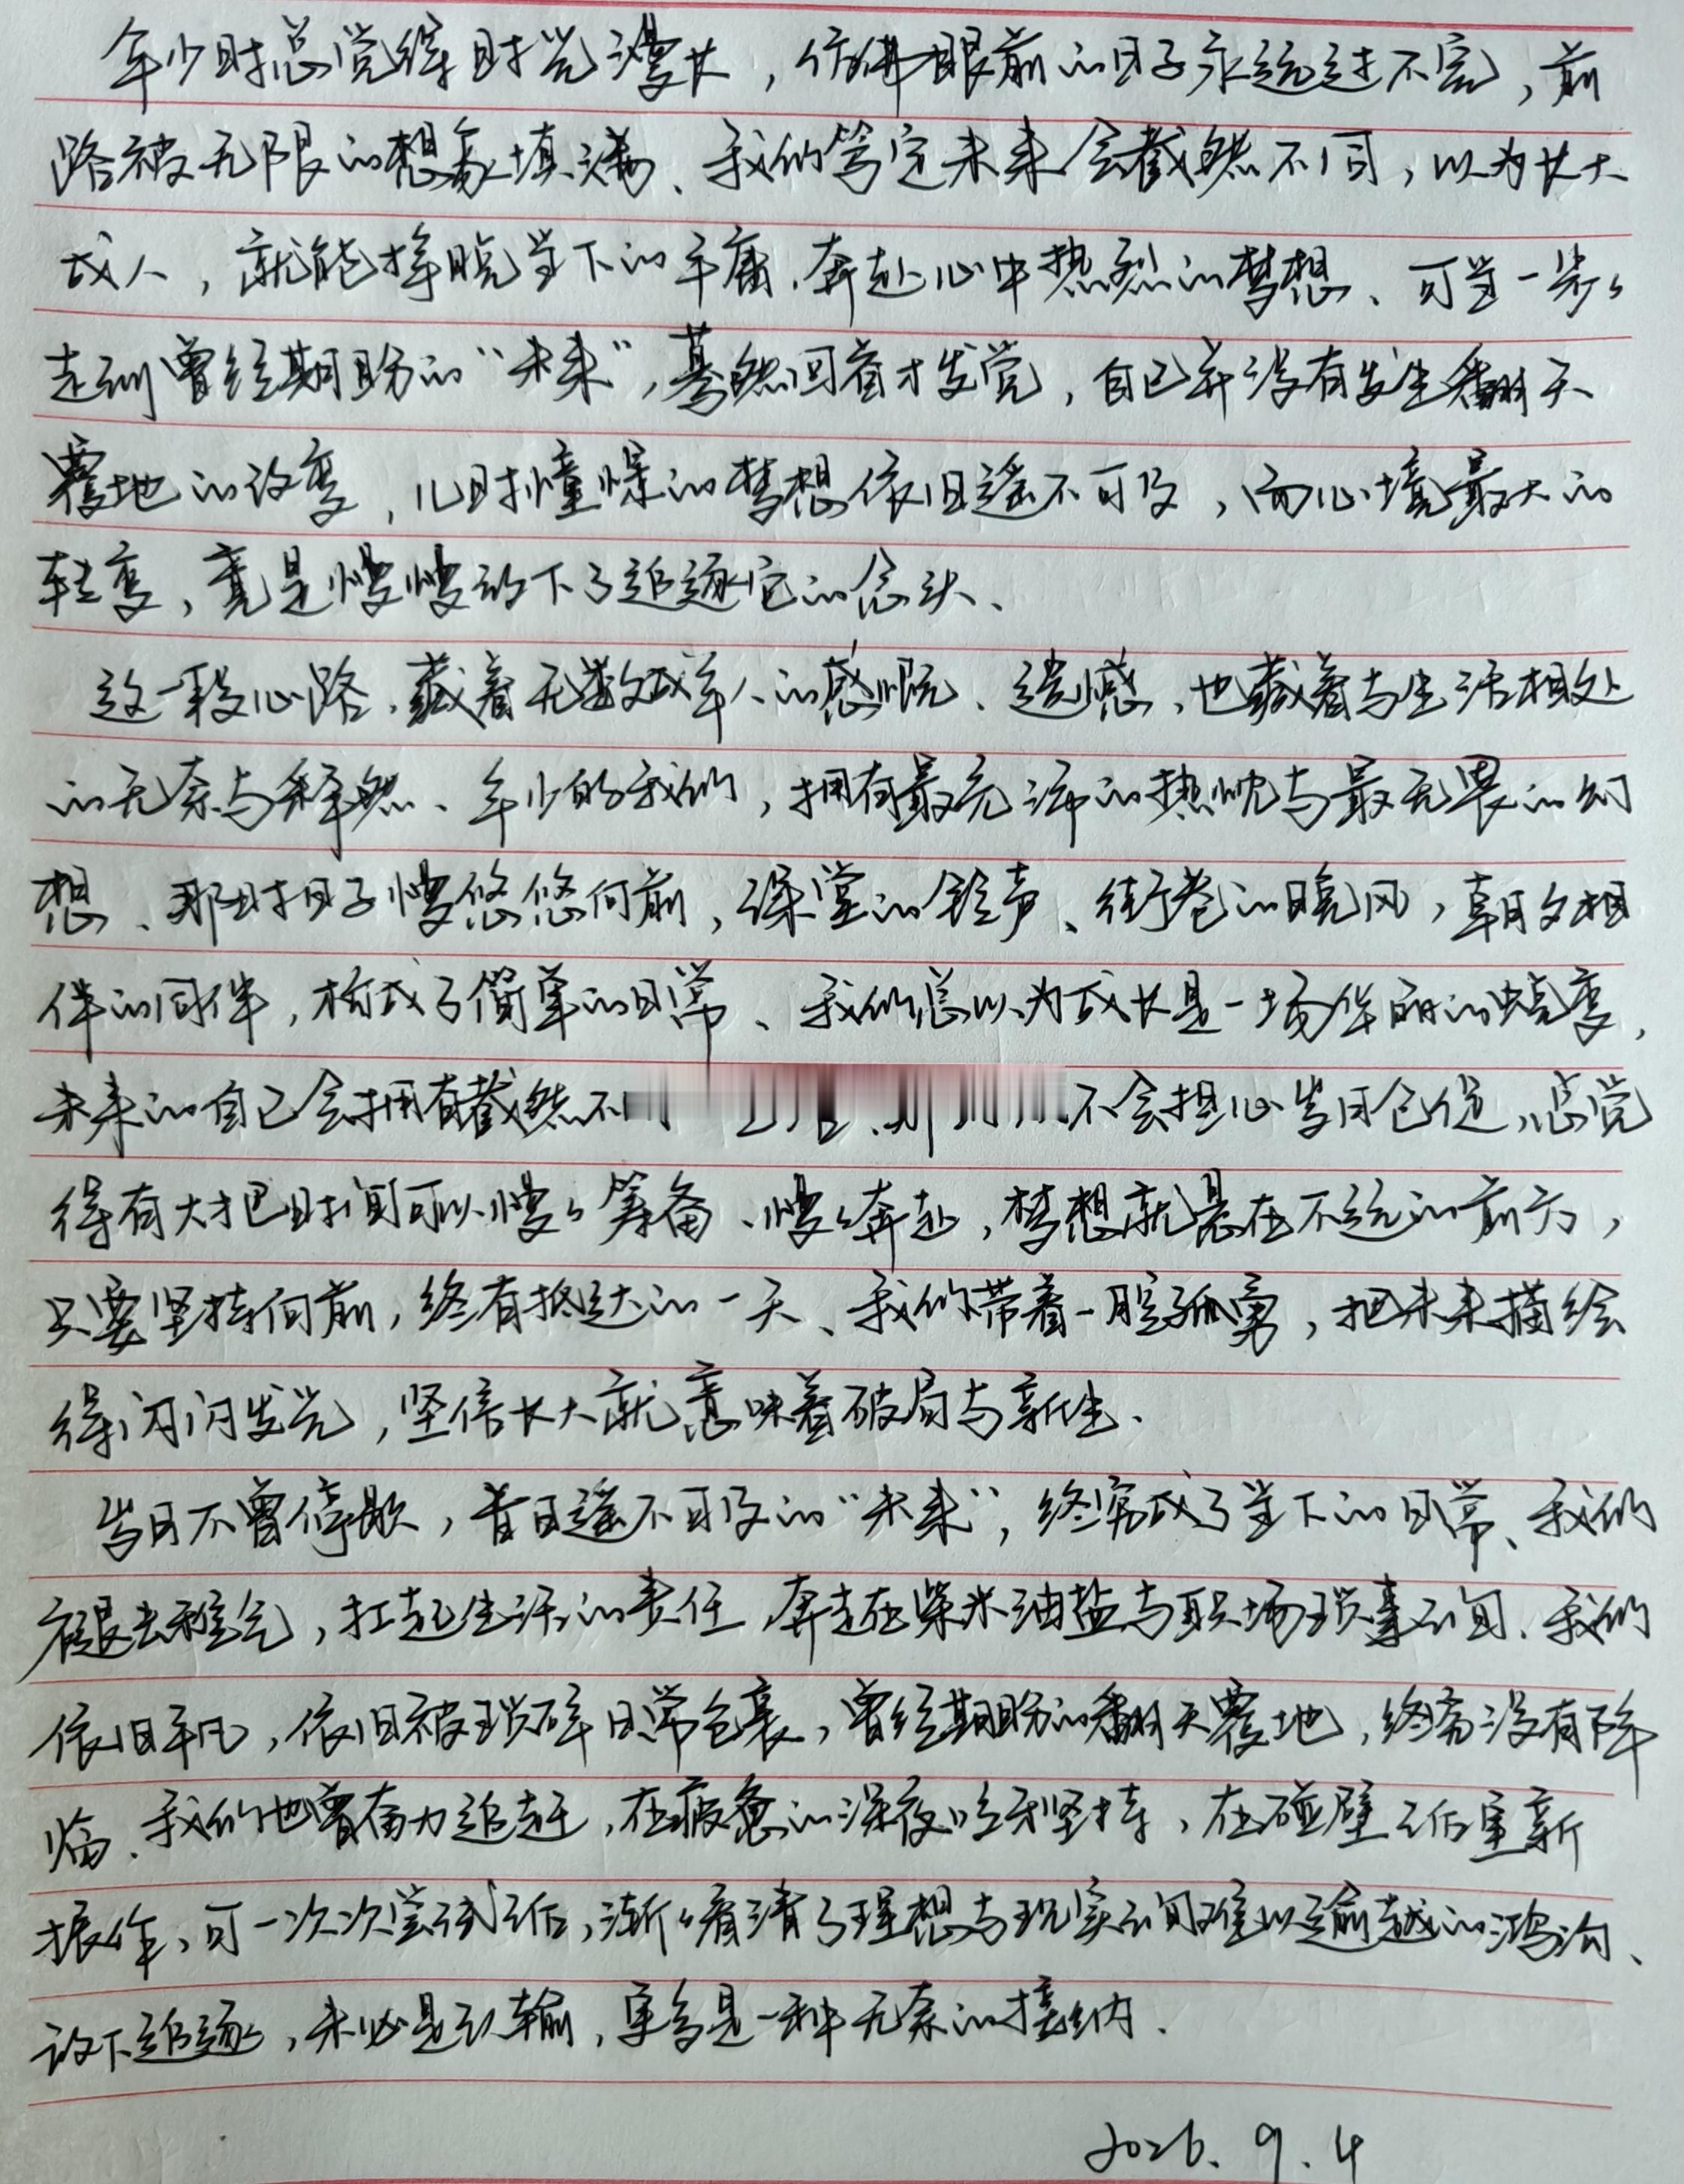 年少时总觉得时光漫长，仿佛眼前的日子永远过不完，前
路被无限的想象填满、我们笃定未来会截然不同，以为长大
成人，就能挣脱当下的平庸、奔赴心中热烈的梦想、可当一步々
走到曾经期盼的“未来”，蓦然回首才发觉，自己并没有发生翻天
覆地的改变，儿时憧憬的梦想依旧遥不可及，而心境最大的
转变，竟是慢慢放下了追逐它的念头、
这一段心路、藏着无数成年人的感慨、遗憾，也藏着与生活相处
的无奈与释然、年少的我们，拥有最充沛的热忱与最无畏的幻
想、那时日子慢悠悠向前，课堂的铃声、街巷的晚风，朝夕相
伴的同伴，构成了简单的日常、我们总以为成长是一场华丽的蜕变，
未来的自己会拥有截然不 不会担心岁月仓促，总觉
得有大把时间可以慢々筹备、慢々奔赴，梦想就悬在不远的前方，
只要坚持向前，终有抵达的一天、我们带着一腔孤勇，把未来描绘
得闪闪发光，坚信长大就意味着破局与新生、
岁月不曾停歇，昔日遥不可及的“未来”，终究成了当下的日常、我们
褪去稚气，扛起生活的责任 奔走在柴米油盐与职场琐事之间、我们
依旧平凡，依旧被琐碎日常包裹，曾经期盼的翻天覆地，终究没有降
临、我们也曾奋力追赶，在疲惫的深夜咬牙坚持，在碰壁之后重新
振作、可一次次尝试之后，渐々看清了理想与现实之间难以逾越的鸿沟、
放下追逐，未必是认输，更多是一种无奈的接纳、
2026.9.4